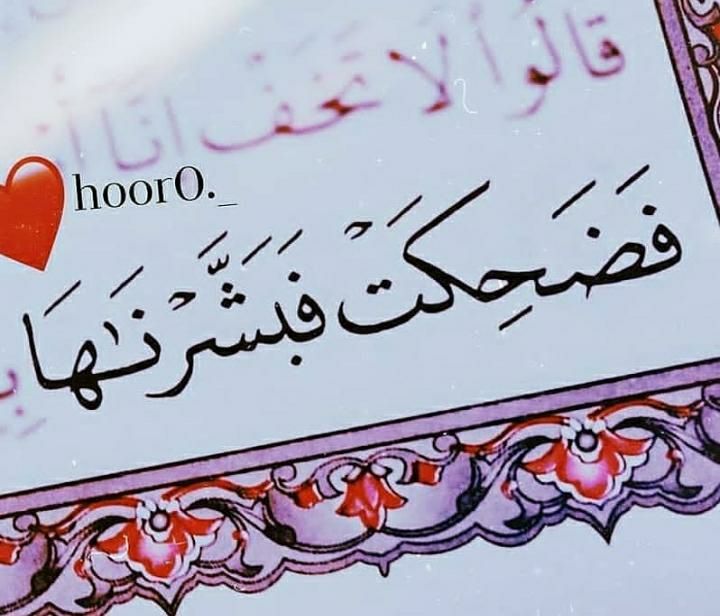 قَالُوا لَا تَخَفْ إِنَّا أُ
hoor0._
فَضَحِكَتْ فَبَشَّرْنَٰهَا